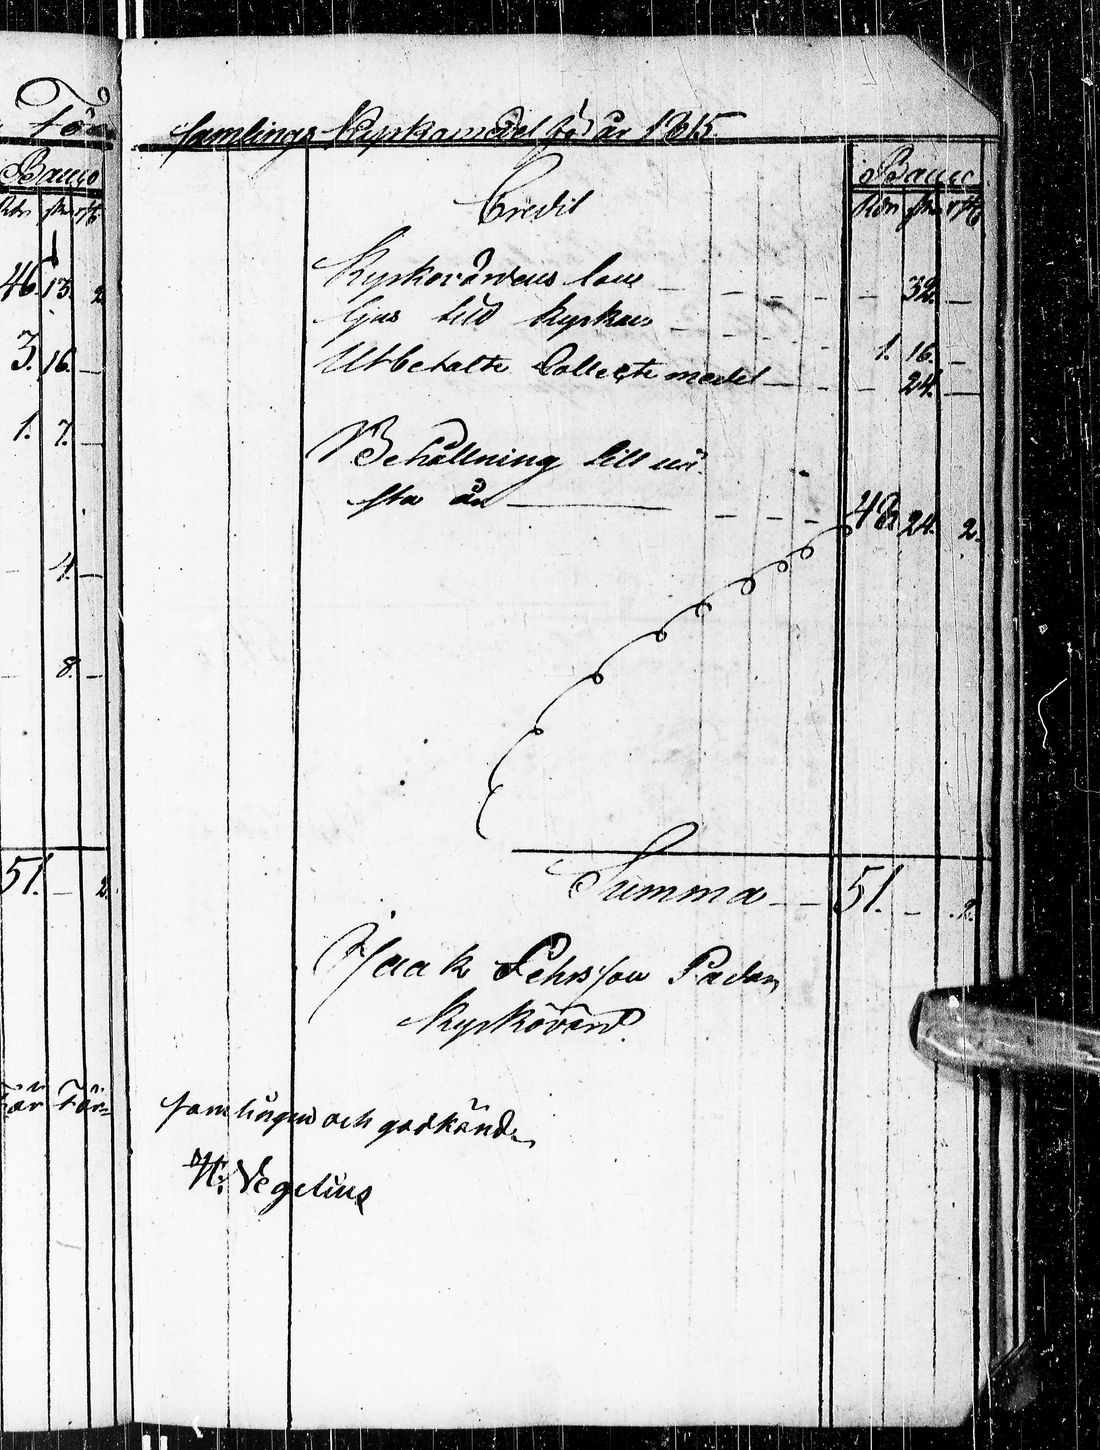 För
Banco
Rdr sk rst
46. 13. 2.
3. 16. —
1. 7. —
4. —
8. —
51. — 2.
För-
samlings Kyrkomedel för år 1815.
Banco
Credit Rdr sk rst
Kyrkovärdens lön — 32. —
Ljus till Kyrkan — 1. 16. —
Utbetalte Collectmedel — 24. —
Behållning till nä-
sta år — 48. 24. 2.
Summa — 51. — 2.
Isaak Pehrsson
Kyrkovärd.
samlingen och godkänd.
Vegelius